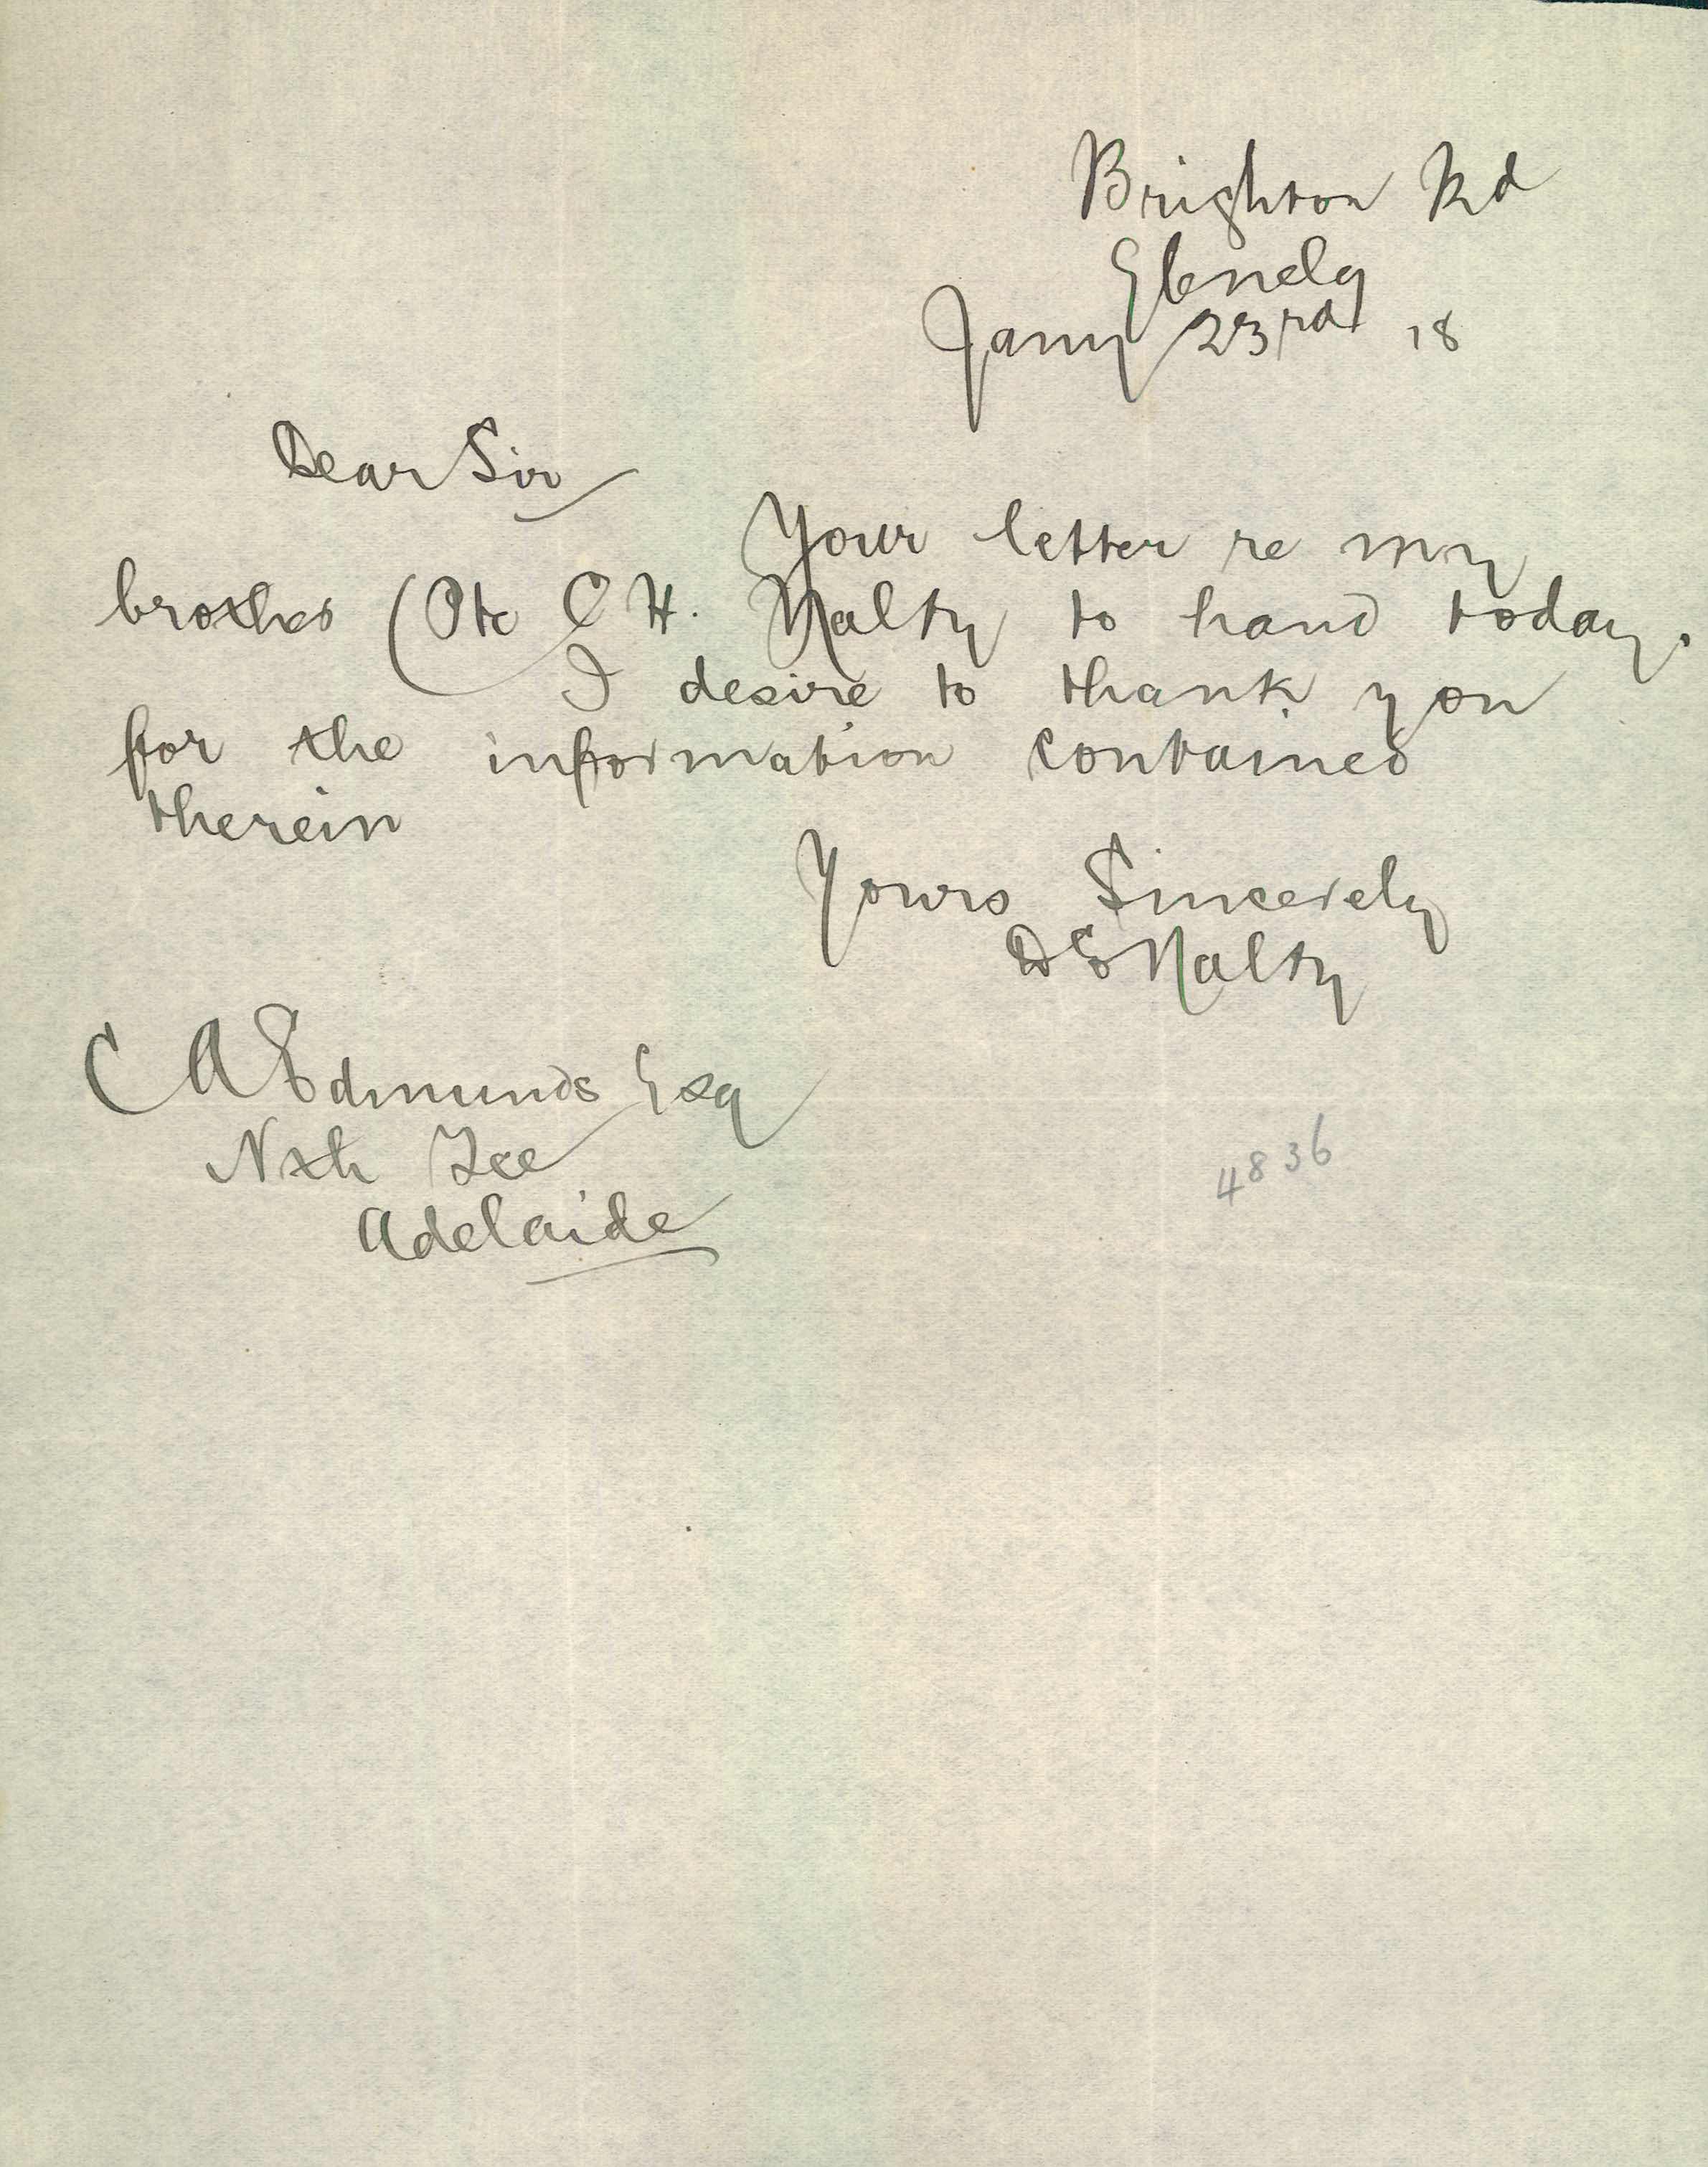 Brighton Rd
Glenelg
Jany 23rd 18
Dear Sir
Your letter re my
brother (Pte C H. Nalty to hand today.
I desire to thank you
for the information contained
therein
Yours Sincerely
D E Nalty
C A Edmunds Esq
Nth Tce
Adelaide
4836